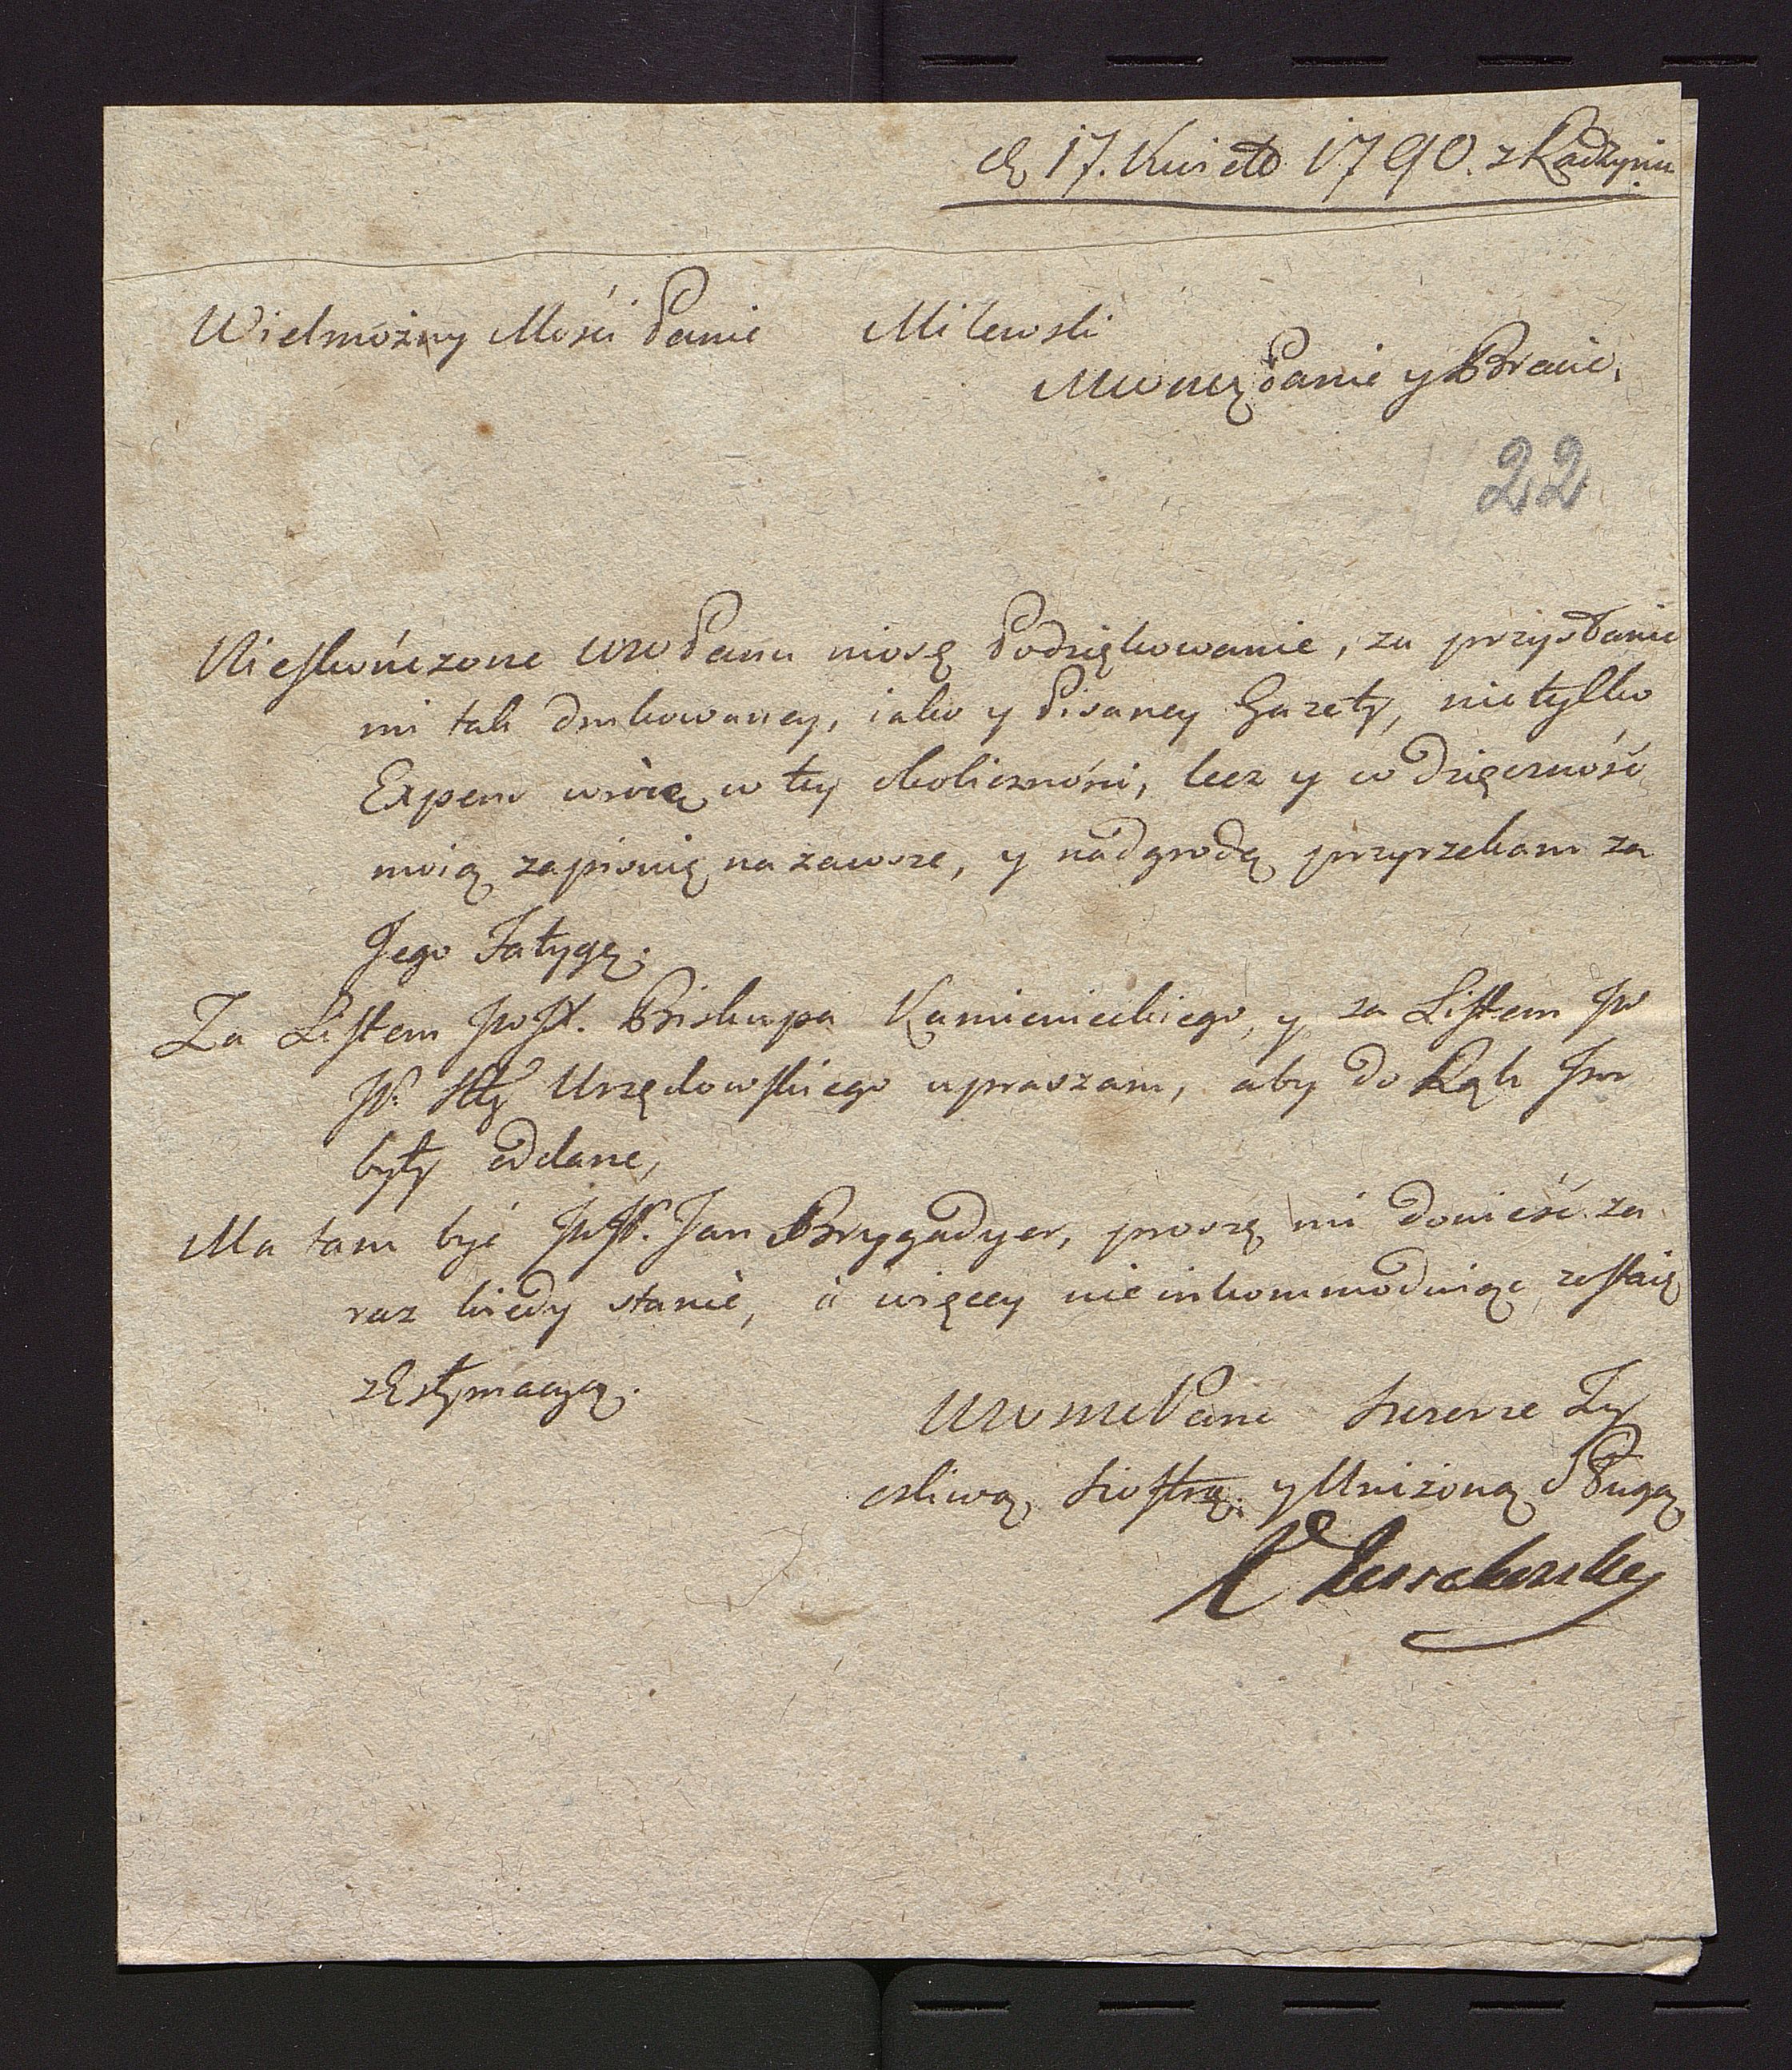 d. 17. Kwiet: 1790. z Radzynia
Wielmożny Mości Panie Milewski
Mwwcy Panie y Bracie,
22
Nieskończone WWPanu niosę Podziękowanie, za przysłanie
mi tak drukowaney, iako y Pisaney Gazety, nie tylko
Expens w tey okoliczności, lecz y wdzięczność
moią zapiszę na zawsze, y nadgrodę przyrzekam za
Jego Fatygę.
Za Listem JWJX. Biskupa Kamienieckiego, y za Listem JW
JP. Stty Urzędowskiego upraszam, aby do Rąk Jm
były oddane,
Ma tam być JWJP. Jan Brygadyer, proszę mi donieść za
raz kiedy stanie, á więcey nie inkommoduiąc, zostaię
z Estymacyą.
WWMPana szczerze Zy
czliwą siostrą. y Uniżoną Sługą